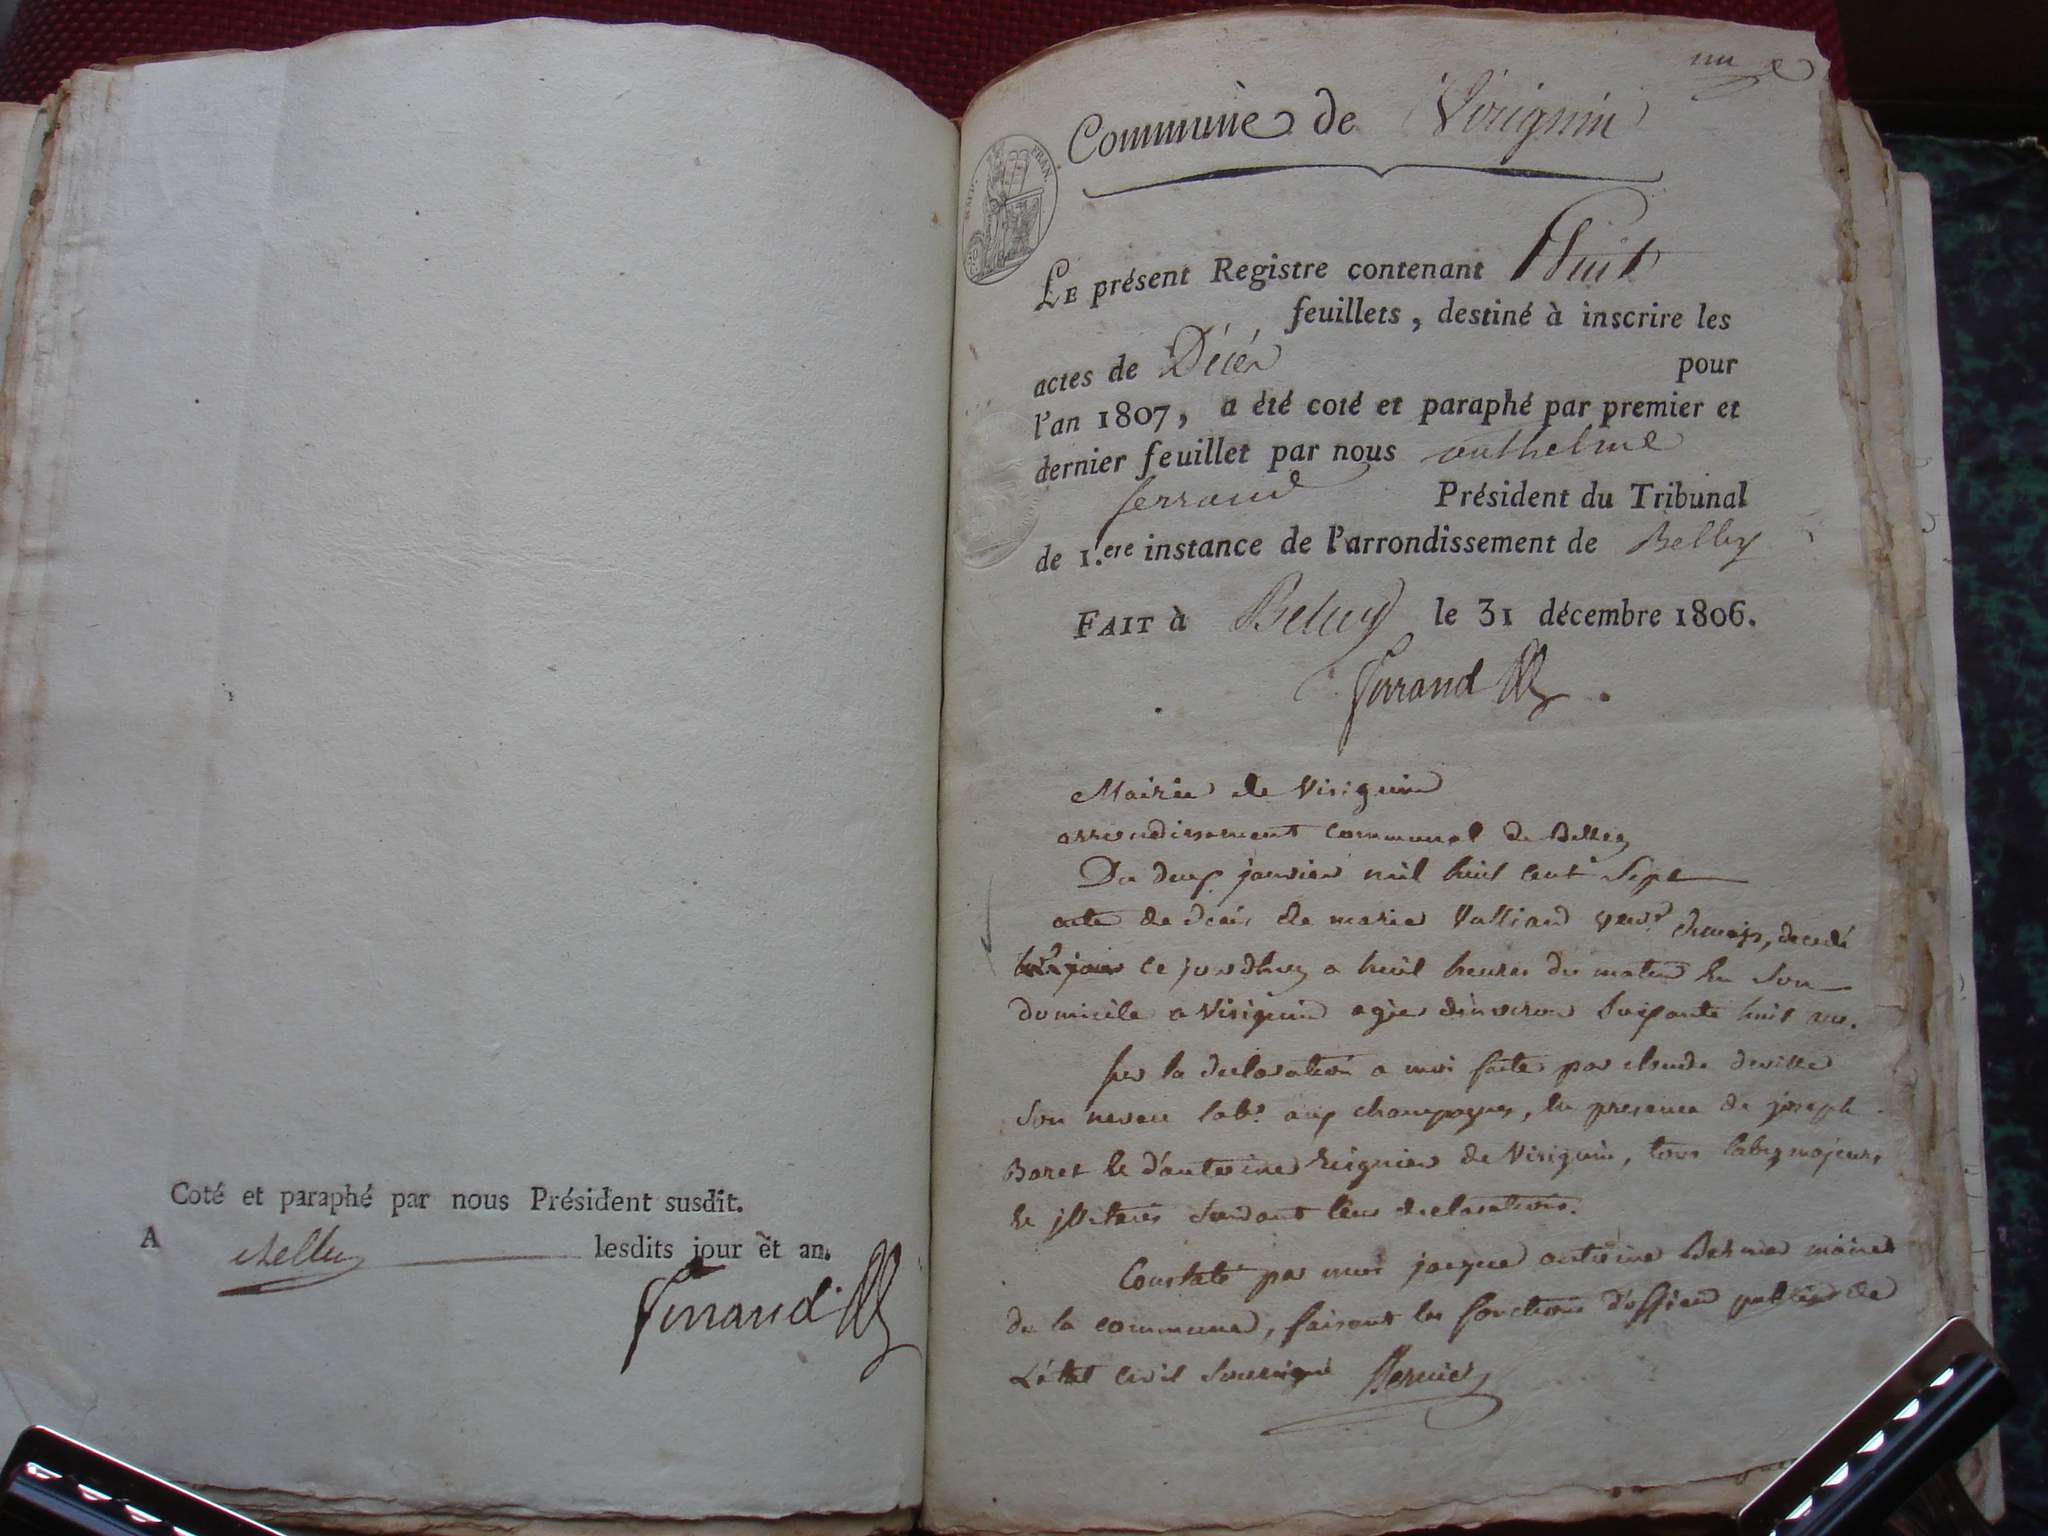 Coté et paraphé par nous Président susdit.
A Belley lesdits jour et an.
Ferrand
un
Commune de Virignin
LE présent Registre contenant Huit
feuillets, destiné à inscrire les
actes de Décès pour
l'an 1807, a été coté et paraphé par premier et
dernier feuillet par nous anthelme
ferrand Président du Tribunal
de 1.ere instance de l'arrondissement de Belley
FAIT à Belley le 31 décembre 1806.
Ferrand
Mairie de Virignin
arrondissement communal de Belley
Du deux janvier mil huit cent Sept
acte de décés de marie Vulliand veuve decedé
ce jourdhuy a huit heures du matin en Son
domicile a Virignin agée d'environ Soixante huit ans.
Sur la declaration a moi faite par claude
Son neveu lab.r aux champagnes, en presence de joseph
Boret et d'antoine Reignier de Virignin, tous lab.rs majeurs
et jlliterés Suivant leur declaration.
Constaté par moi jacque antoine Bernier maire
de la commune, faisant les fonctions d'officier public de
L'état civil Soussigné Bernier